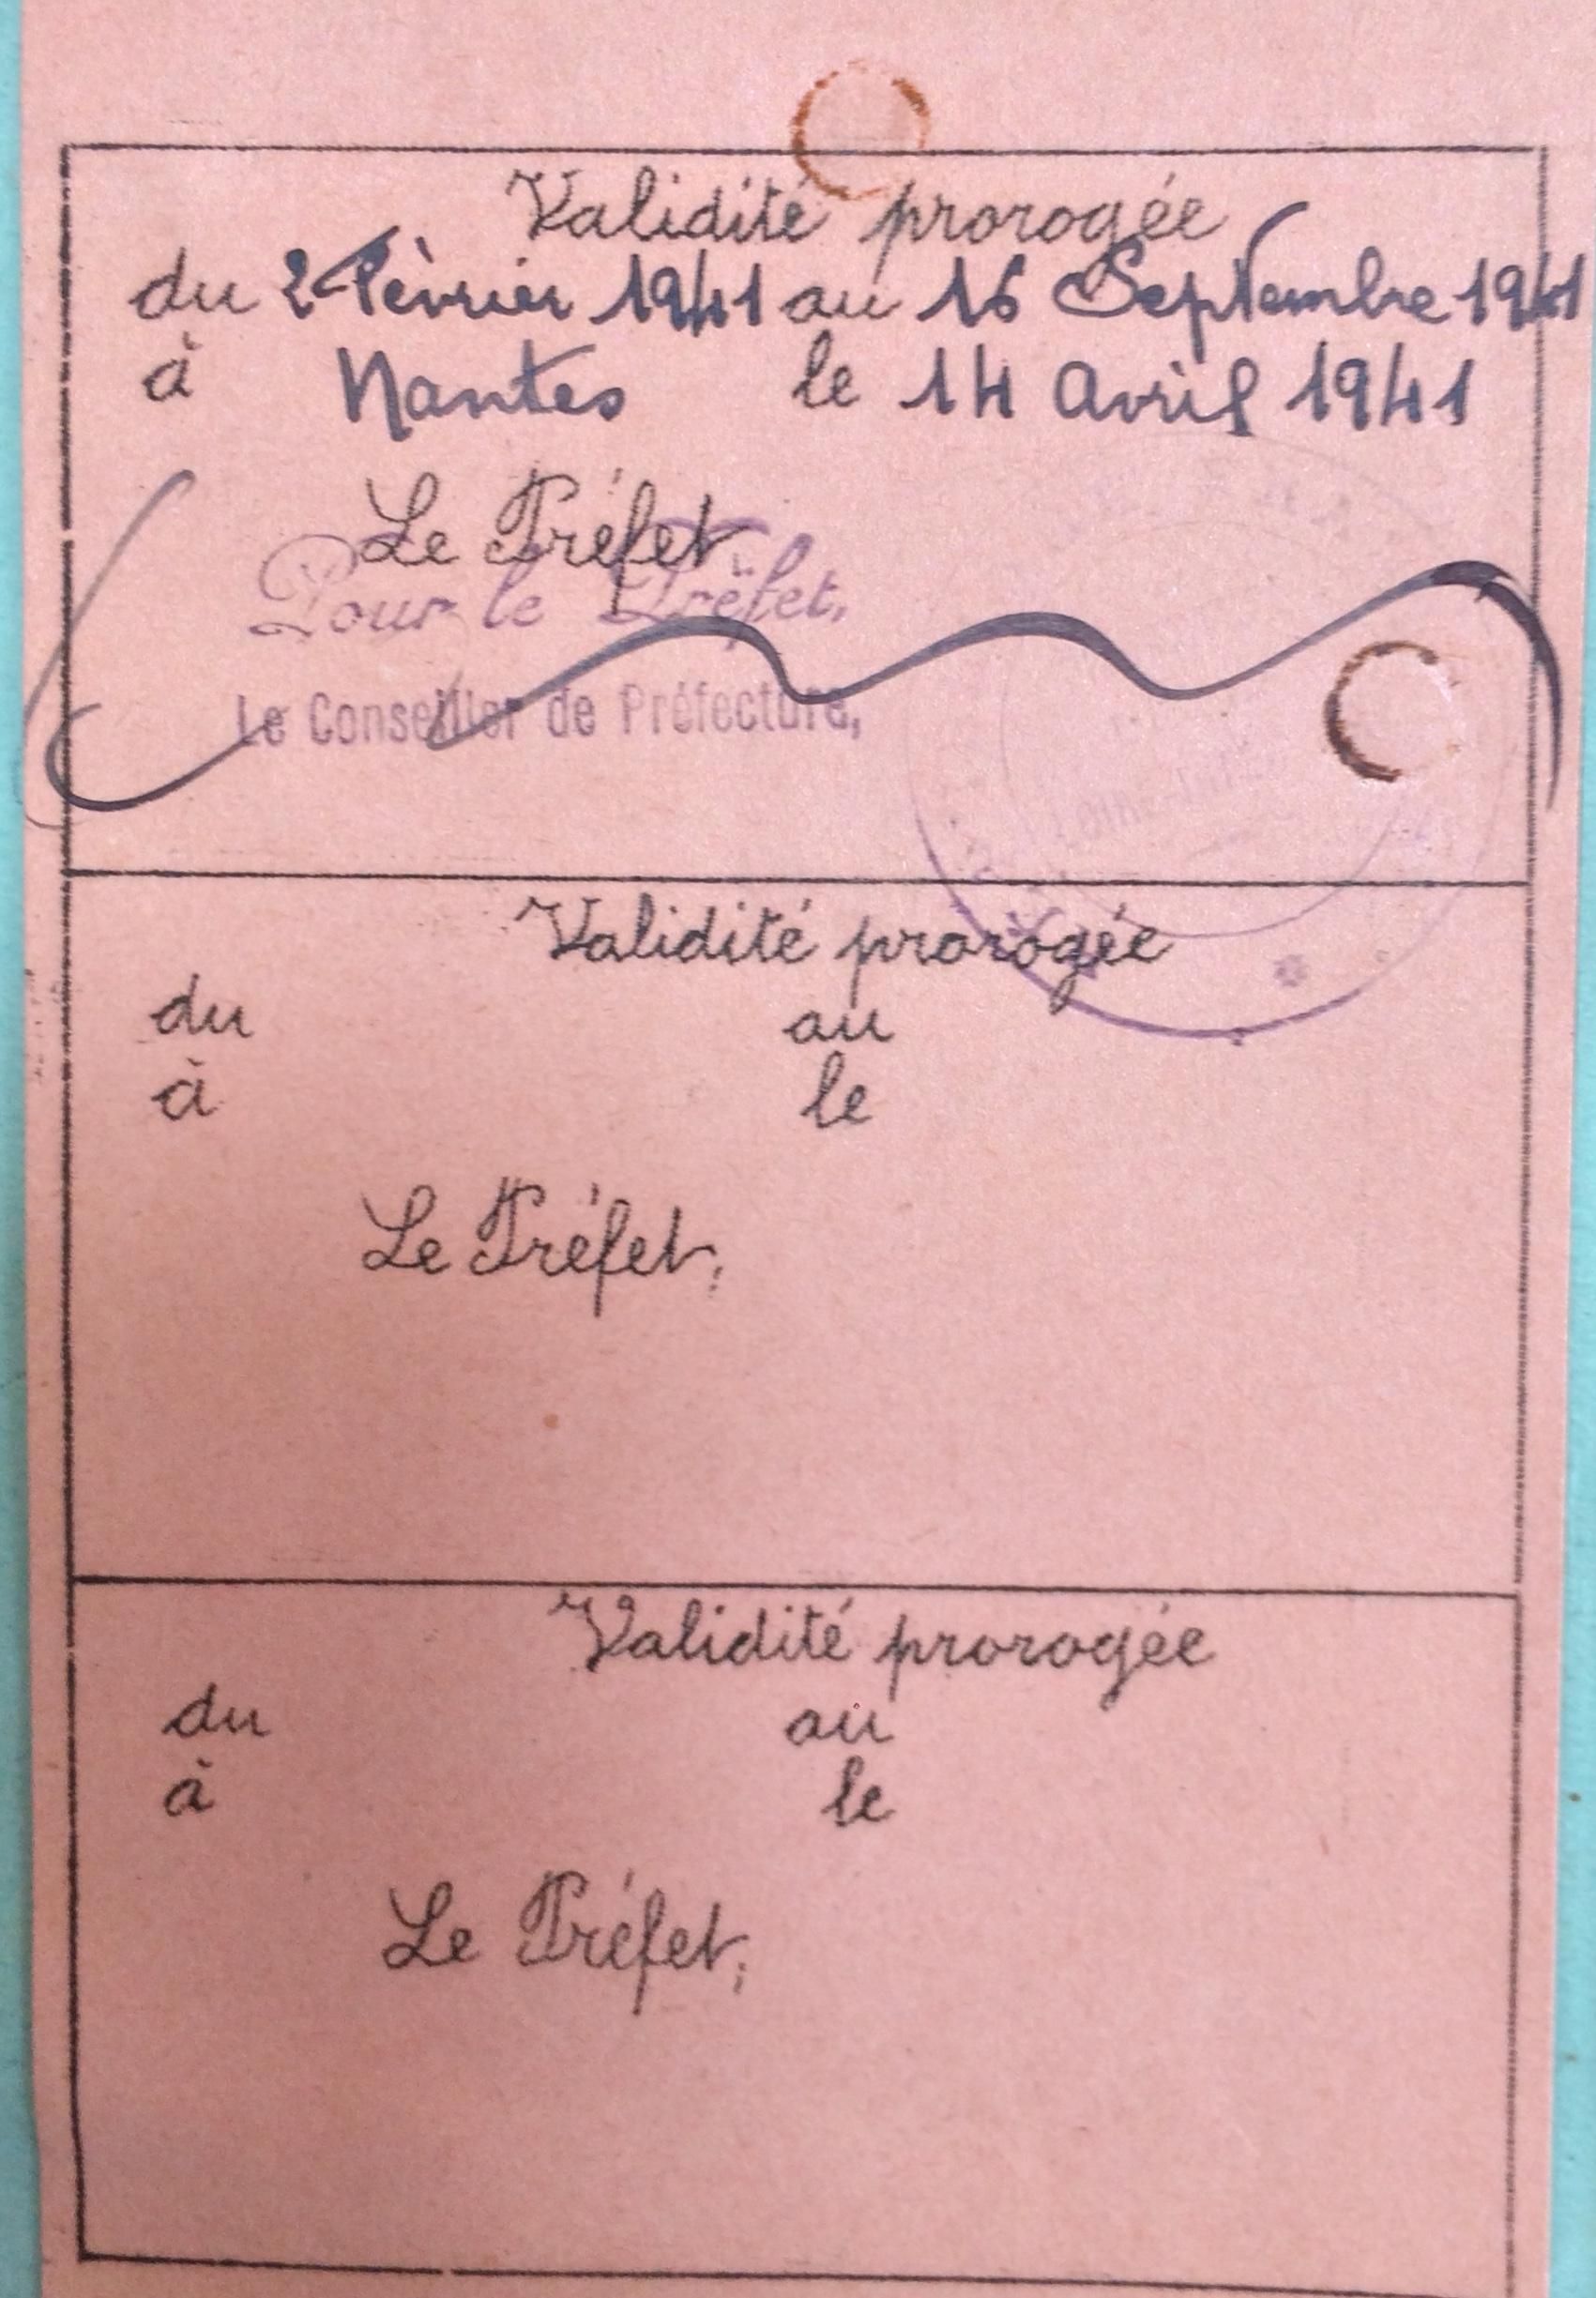 Validité prorogée
du 2 Février 1941 au 16 Septembre 1941
à Nantes le 14 Avril 1941
Le Préfet
Pour le Préfet,
Le Conseiller de Préfecture,
Validité prorogée
du au
à le
Le Préfet,
Validité prorogée
du au
à le
Le Préfet,